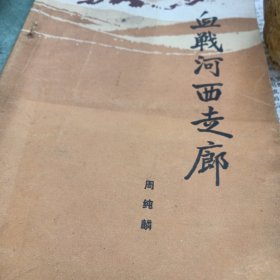 血戰河西走廊
周纯麟